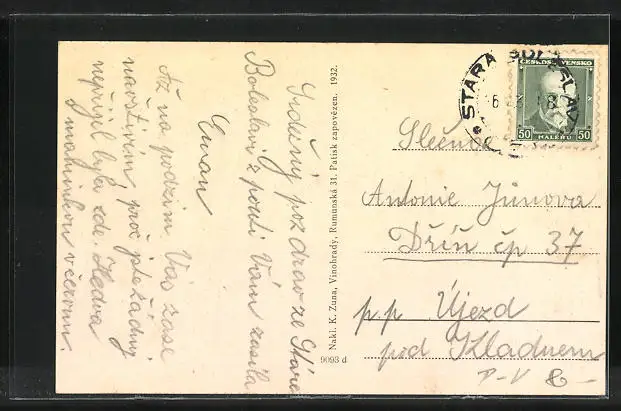 Srdečný pozdrav ze Staré
Boleslavi z pouti Vám zasílá
Eman
Až na podzim Vás zase
navštívím, proč jste žádný
nepřijel byla zde Hedva
s maminkou včerum.
Nakl. K. Zuna, Vinohrady, Rumunská 31. Patisk zapovězen. 1932.
9093 d
STARÁ BOLESLAV
ČESKOSLOVENSKO
50 HALÉŘŮ 50
Slečna
Antonie Jůnova
Dříň čp 37
p.p Újezd
pod Kladnem